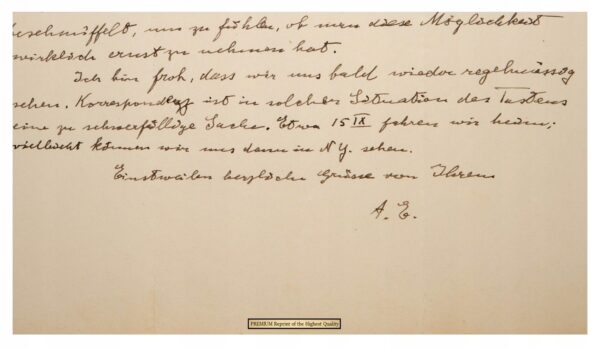 beschnüffelt, um zu fühlen, ob man diese Möglichkeit
wirklich ernst zu nehmen hat.
Ich bin froh, dass wir uns bald wieder regelmässig
sehen. Korrespondenz ist in solcher Situation des Tastens
eine zu schwerfällige Sache. Etwa 15 IX fahren wir heim;
vielleicht können wir uns dann in N.Y. sehen.
Einstweilen herzliche Grüsse von Ihrem
A. E.
PREMIUM Reprint of the Highest Quality